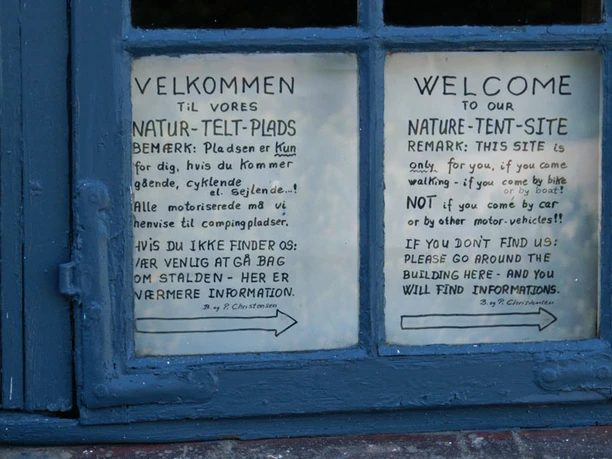 VELKOMMEN
TiL VORES
NATUR-TELT-PLADS
BEMÆRK: Pladsen er Kun
for dig, hvis du Kommer
gående, cyklende
el. Sejlende...!
Alle motoriserede må vi
henvise til campingpladser.
HVIS DU IKKE FINDER OS:
VÆR VENLIG AT GÅ BAG
OM STALDEN - HER ER
NÆRMERE INFORMATION.
B. og P. Christensen
WELCOME
TO OUR
NATURE-TENT-SITE
REMARK: THIS SITE is
only for you, if you come
walking - if you come by bike
or by boat!
NOT if you come by car
or by other motor-vehicles!!
IF YOU DON'T FIND US:
PLEASE GO AROUND THE
BUILDING HERE - AND YOU
WILL FIND INFORMATIONS.
B. og P. Christensen